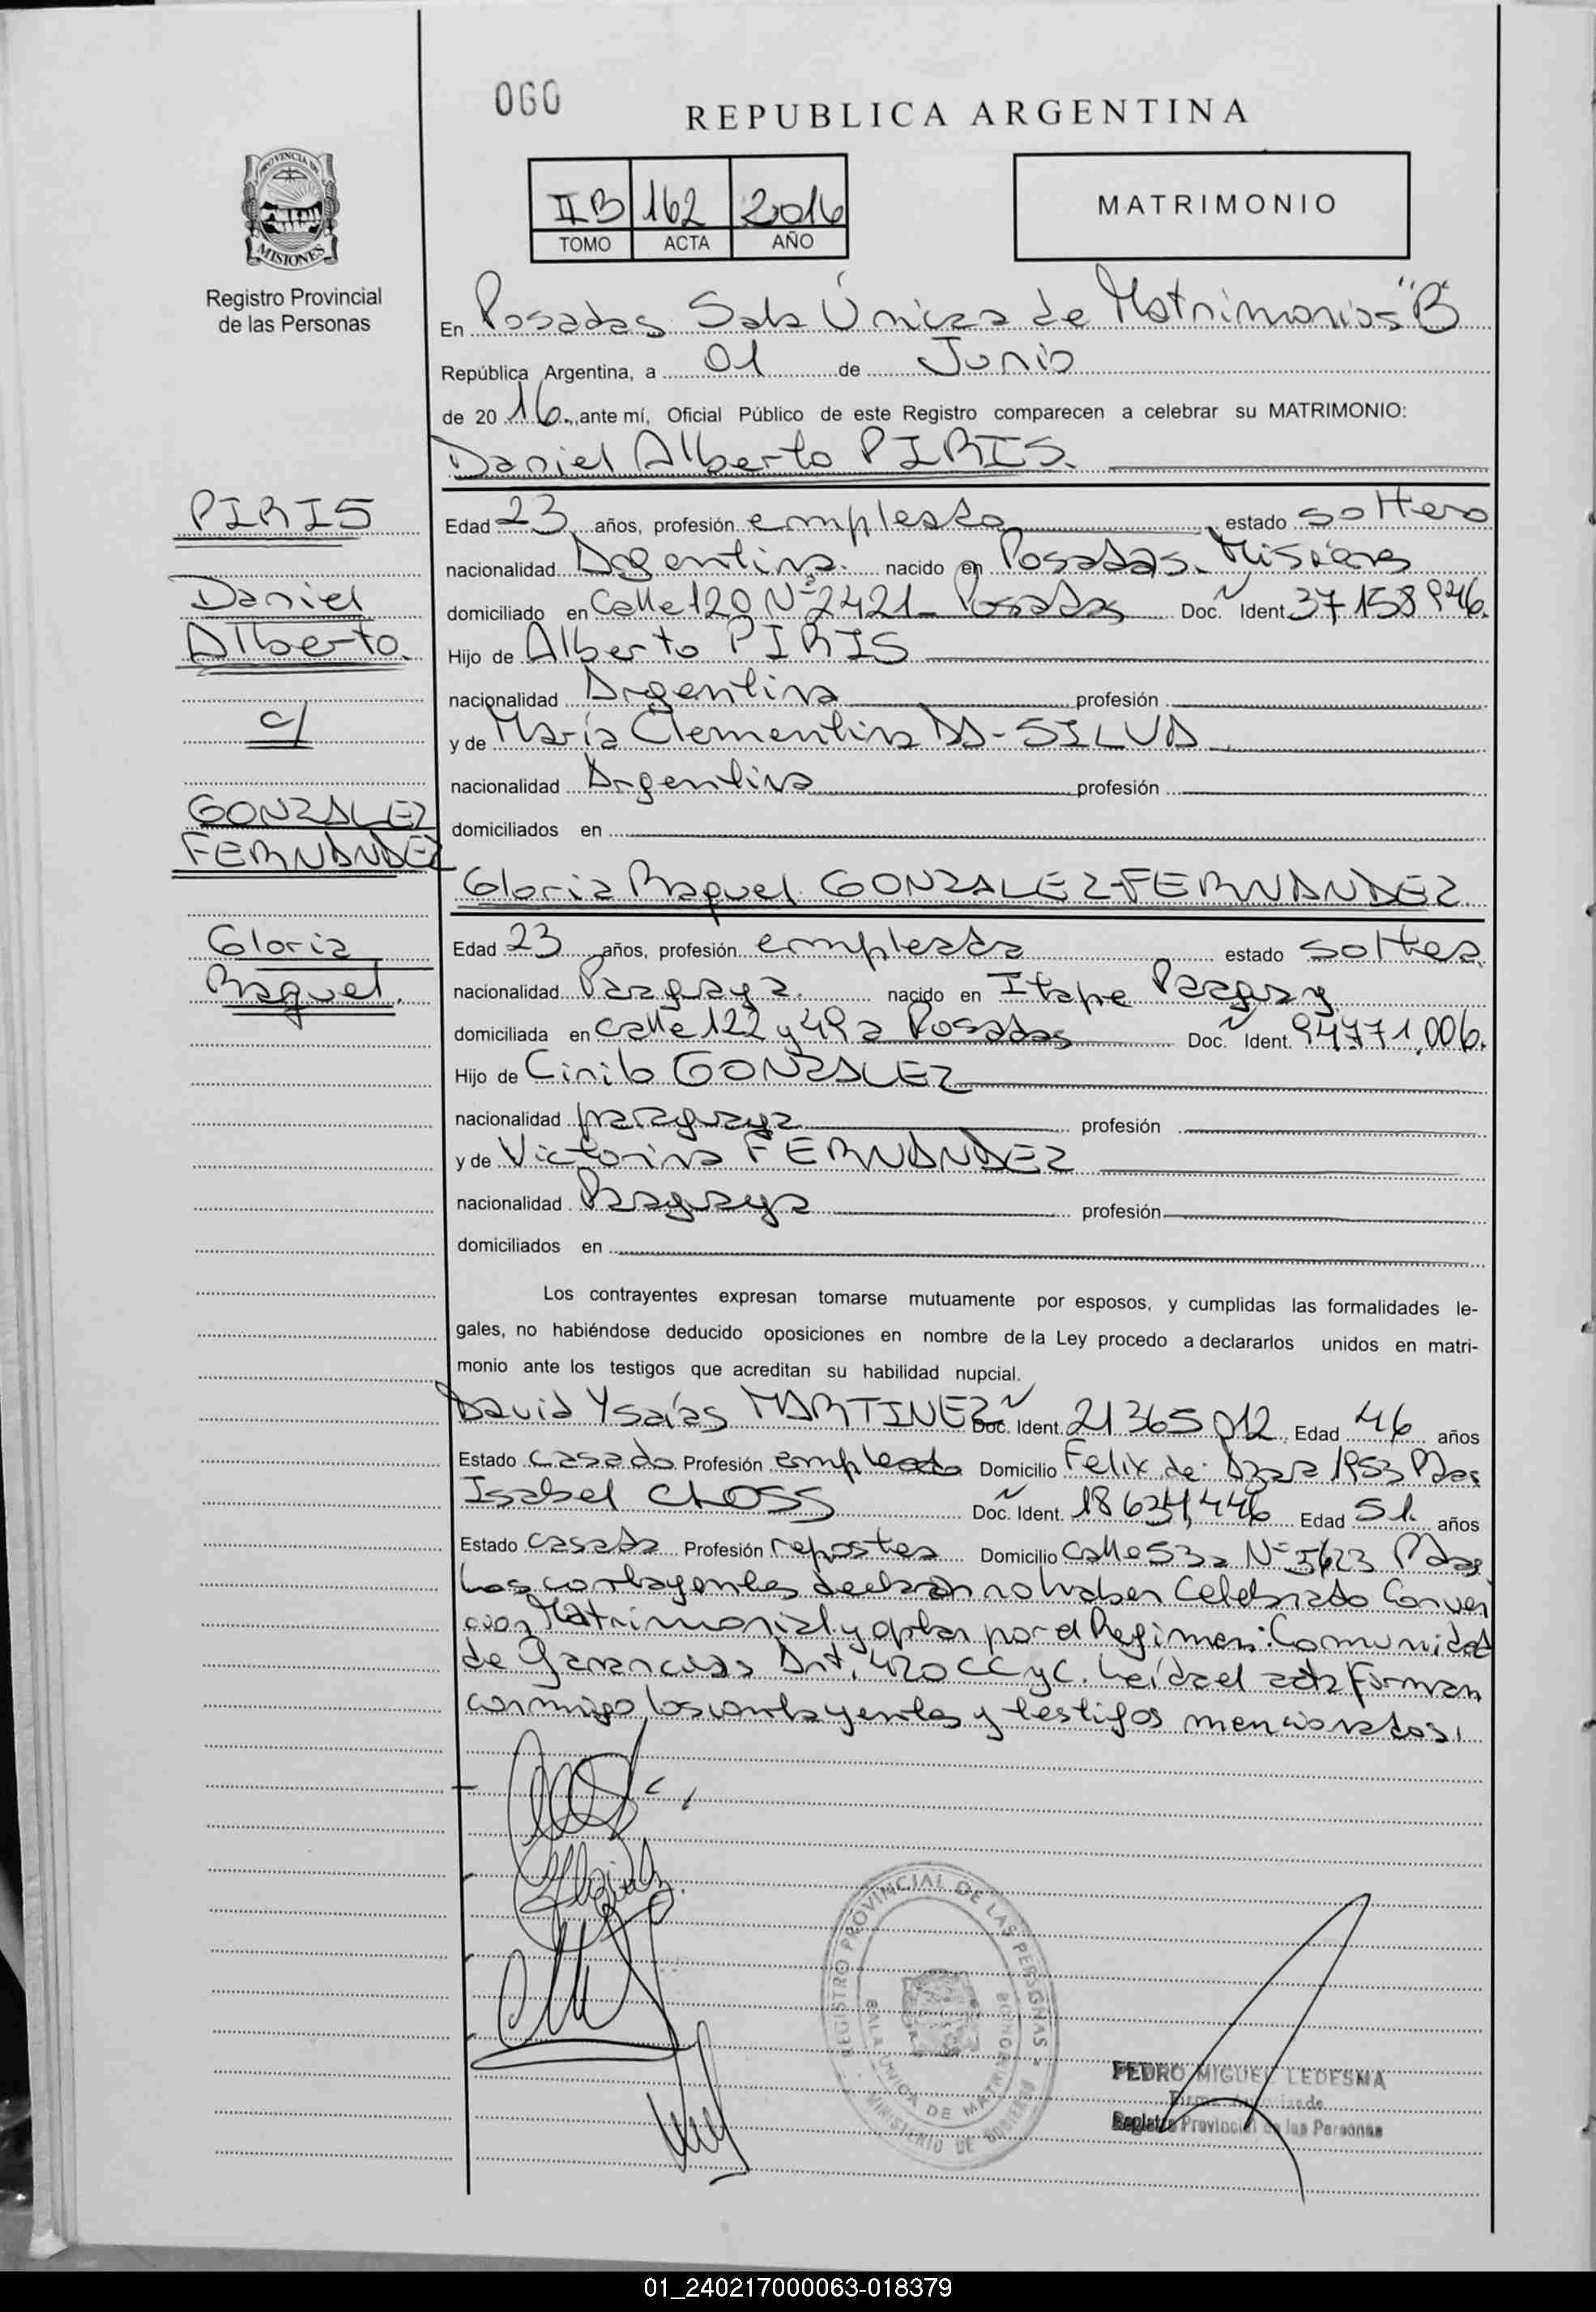 060
REPUBLICA ARGENTINA
PROVINCIA DE
MISIONES
Registro Provincial
de las Personas
IIB 162 2016
TOMO ACTA AÑO
MATRIMONIO
En Posadas Sala Única de Matrimonios "B"
República Argentina, a 01 de Junio
de 2016., ante mí, Oficial Público de este Registro comparecen a celebrar su MATRIMONIO:
Daniel Alberto PIRIS.
PIRIS
Daniel
Alberto.
c/
GONZALEZ
FERNANDEZ
Gloria
Raquel.
Edad 23 años, profesión empleado estado soltero
nacionalidad Argentina. nacido en Posadas. Misiones
domiciliado en Calle 120 Nº 2421 - Posadas Doc. Ident. 37.158.946.
Hijo de Alberto PIRIS
nacionalidad Argentina profesión
y de María Clementina DA-SILVA
nacionalidad Argentina profesión
domiciliados en
Gloria Raquel GONZALEZ-FERNANDEZ
Edad 23 años, profesión empleada estado soltera
nacionalidad Paraguaya. nacido en Itape Paraguay
domiciliada en calle 122 y 49 a Posadas Doc. Ident. 94.771.006.
Hijo de Cirilo GONZALEZ
nacionalidad paraguaya profesión
y de Victorina FERNANDEZ
nacionalidad Paraguaya profesión
domiciliados en
Los contrayentes expresan tomarse mutuamente por esposos, y cumplidas las formalidades le-
gales, no habiéndose deducido oposiciones en nombre de la Ley procedo a declararlos unidos en matri-
monio ante los testigos que acreditan su habilidad nupcial.
David Ysaías MARTINEZ Doc. Ident. 21.365.012 Edad 46 años
Estado casado Profesión empleado Domicilio Felix de Azara 1953 Pdas
Isabel CLOSS Doc. Ident. 18.631.446 Edad 51. años
Estado casada Profesión repostera Domicilio Calle 53 a Nº 5623 Pdas
Los contrayentes declaran no haber Celebrado Conven
cion Matrimonial y optan por el Regimen: Comunidad
de Ganancias Art. 420 CC y C. Leída el acta firman
conmigo los contrayentes y testigos mencionados.
REGISTRO PROVINCIAL DE LAS PERSONAS
SALA UNICA DE MATRIMONIO
MINISTERIO DE GOBIERNO
PEDRO MIGUEL LEDESMA
Registro Provincial de las Personas
01_240217000063-018379